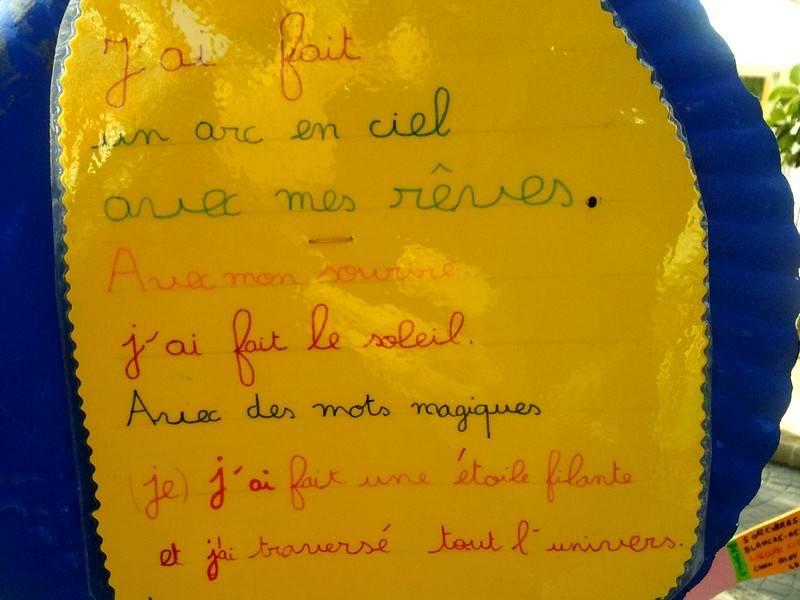 J'ai fait
un arc en ciel
avec mes rêves.
Avec mon sourire
j'ai fait le soleil.
Avec des mots magiques
(je) j'ai fait une étoile filante
et j'ai traversé tout l'univers.
SORCIÈRES